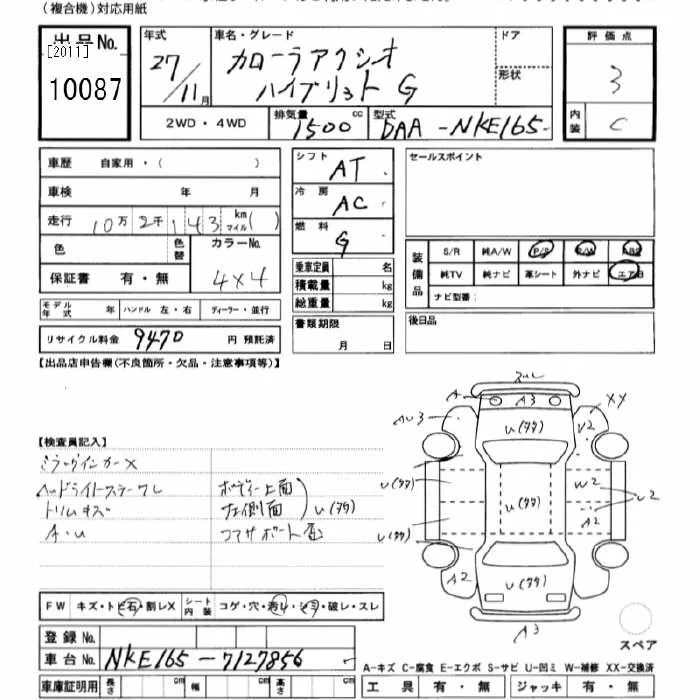 (複合機)対応用紙
出品No.
[2011]
10087
年式 27/11月
車名・グレード カローラアクシオ
ハイブリット G
ドア
形状
2WD・4WD
排気量 1500 cc
型式 DAA-NKE165-
評価点 3
内装 C
車歴 自家用・( )
車検 年 月
走行 10万2千143 km マイル( )
色 色替 カラーNo.
保証書 有・無 4X4
モデル年式 年 ハンドル 左・右 ディーラー・並行
リサイクル料金 9470 円 預託済
シフト AT
冷房 AC
燃料 G
乗車定員 名
積載量 kg
総重量 kg
書類期限
月 日
セールスポイント
装備品
S/R 純A/W P/S P/W ABS
純TV 純ナビ 革シート 外ナビ エアB
ナビ型番:
後日品
【出品店申告欄(不良箇所・欠品・注意事項等)】
【検査員記入】
ミラーウインカーX
ヘッドライトステーワレ
トリムキズ
A・U
ボディー上面
左側面
U(タタ)
コアサポート歪
スレ
A
A3
XX
AU3
U(タタ)
V2
U(タタ)
U(タタ)
W2
U2
U(タタ)
A2
A2
U(タタ)
A3
スペア
FW キズ・トビ石・割レX シート内装 コゲ・穴・汚レ・シミ・破レ・スレ
登録No.
車台No. NKE165-7127856
車庫証明用 長さ cm 幅 cm 高さ cm
A-キズ C-腐食 E-エクボ S-サビ U-凹ミ W-補修 XX-交換済
工具 有・無 ジャッキ 有・無